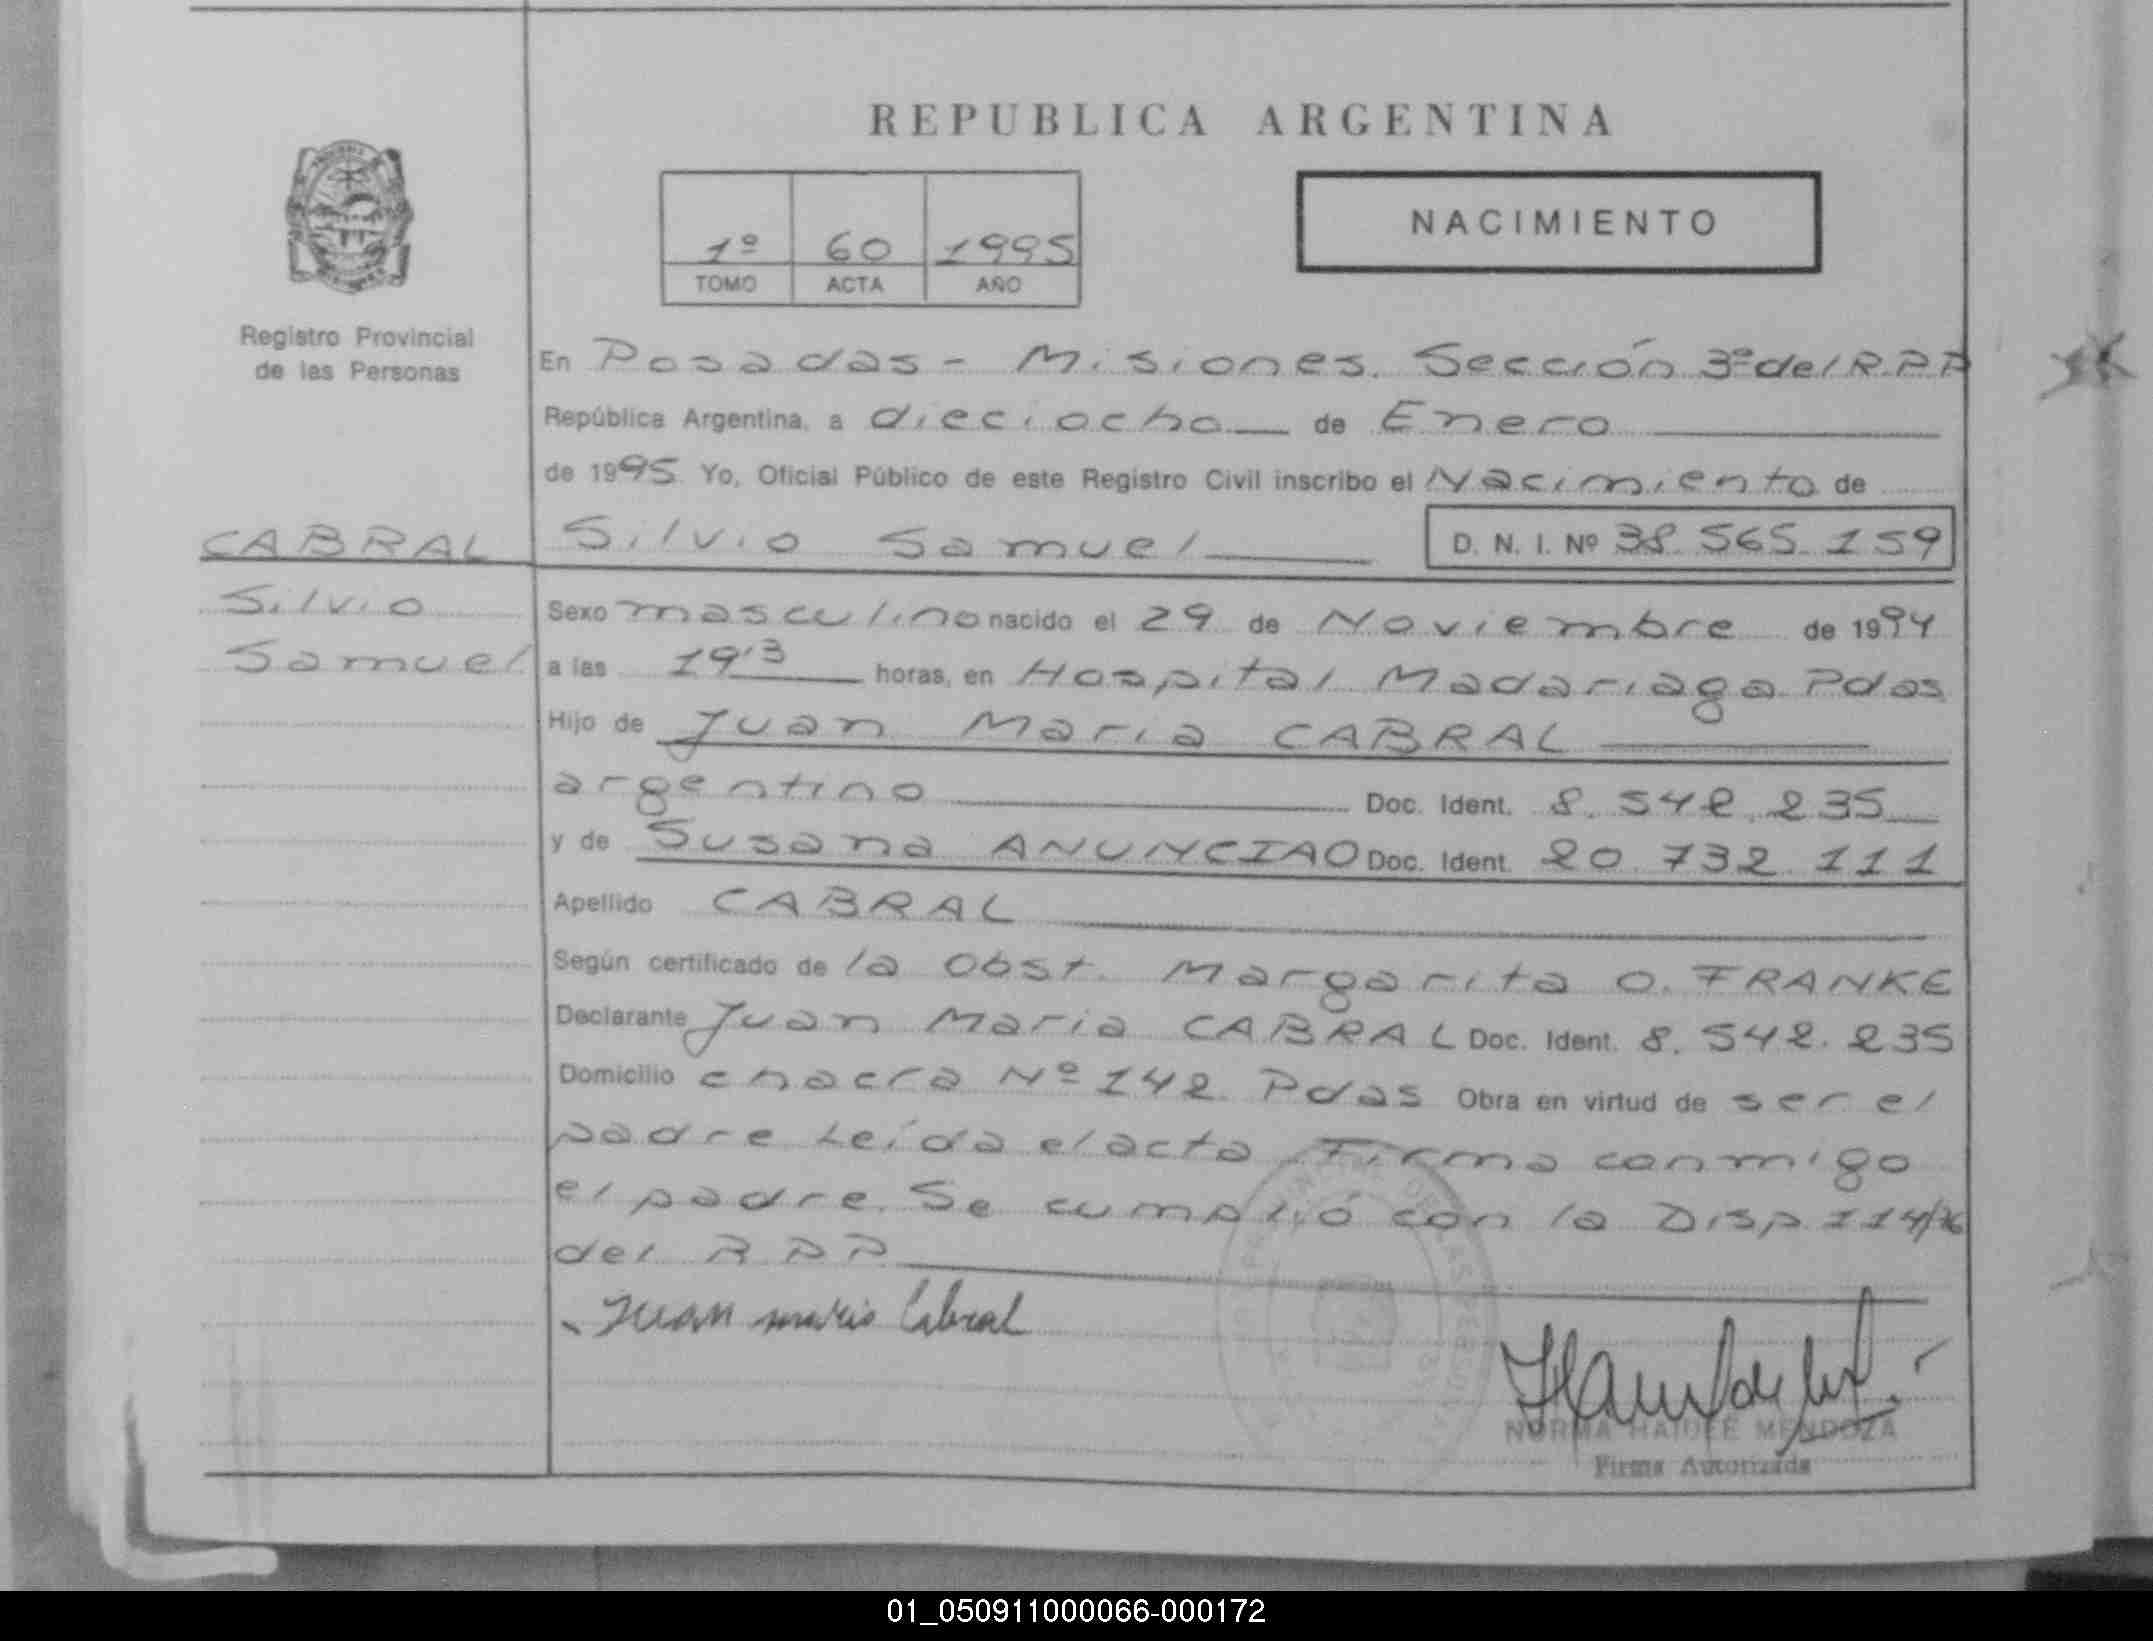 REPUBLICA ARGENTINA
1º 60 1995
TOMO ACTA AÑO
NACIMIENTO
Registro Provincial
de las Personas
CABRAL
Silvio
Samuel
En Posadas - Misiones. Sección 3º del R.P.P
República Argentina, a dieciocho de Enero
de 1995 Yo, Oficial Público de este Registro Civil inscribo el Nacimiento de
Silvio Samuel D. N. I. Nº 38.565.159
Sexo masculino nacido el 29 de Noviembre de 1994
a las horas, en Hospital Madariaga Pdas
Hijo de Juan Maria CABRAL
argentino Doc. Ident. 8.542.235
y de Susana ANUNCIAO Doc. Ident. 20.732.111
Apellido CABRAL
Según certificado de la Obst. Margarita O. FRANKE
Declarante Juan Maria CABRAL Doc. Ident. 8.542.235
Domicilio chacra Nº 142 Pdas Obra en virtud de ser el
padre Leída el acta Firma conmigo
el padre. Se cumplió con la Disp. 114/76
del R P P
Juan maria Cabral
NORMA HAIDEE MENDOZA
Firma Autorizada
01_050911000066-000172